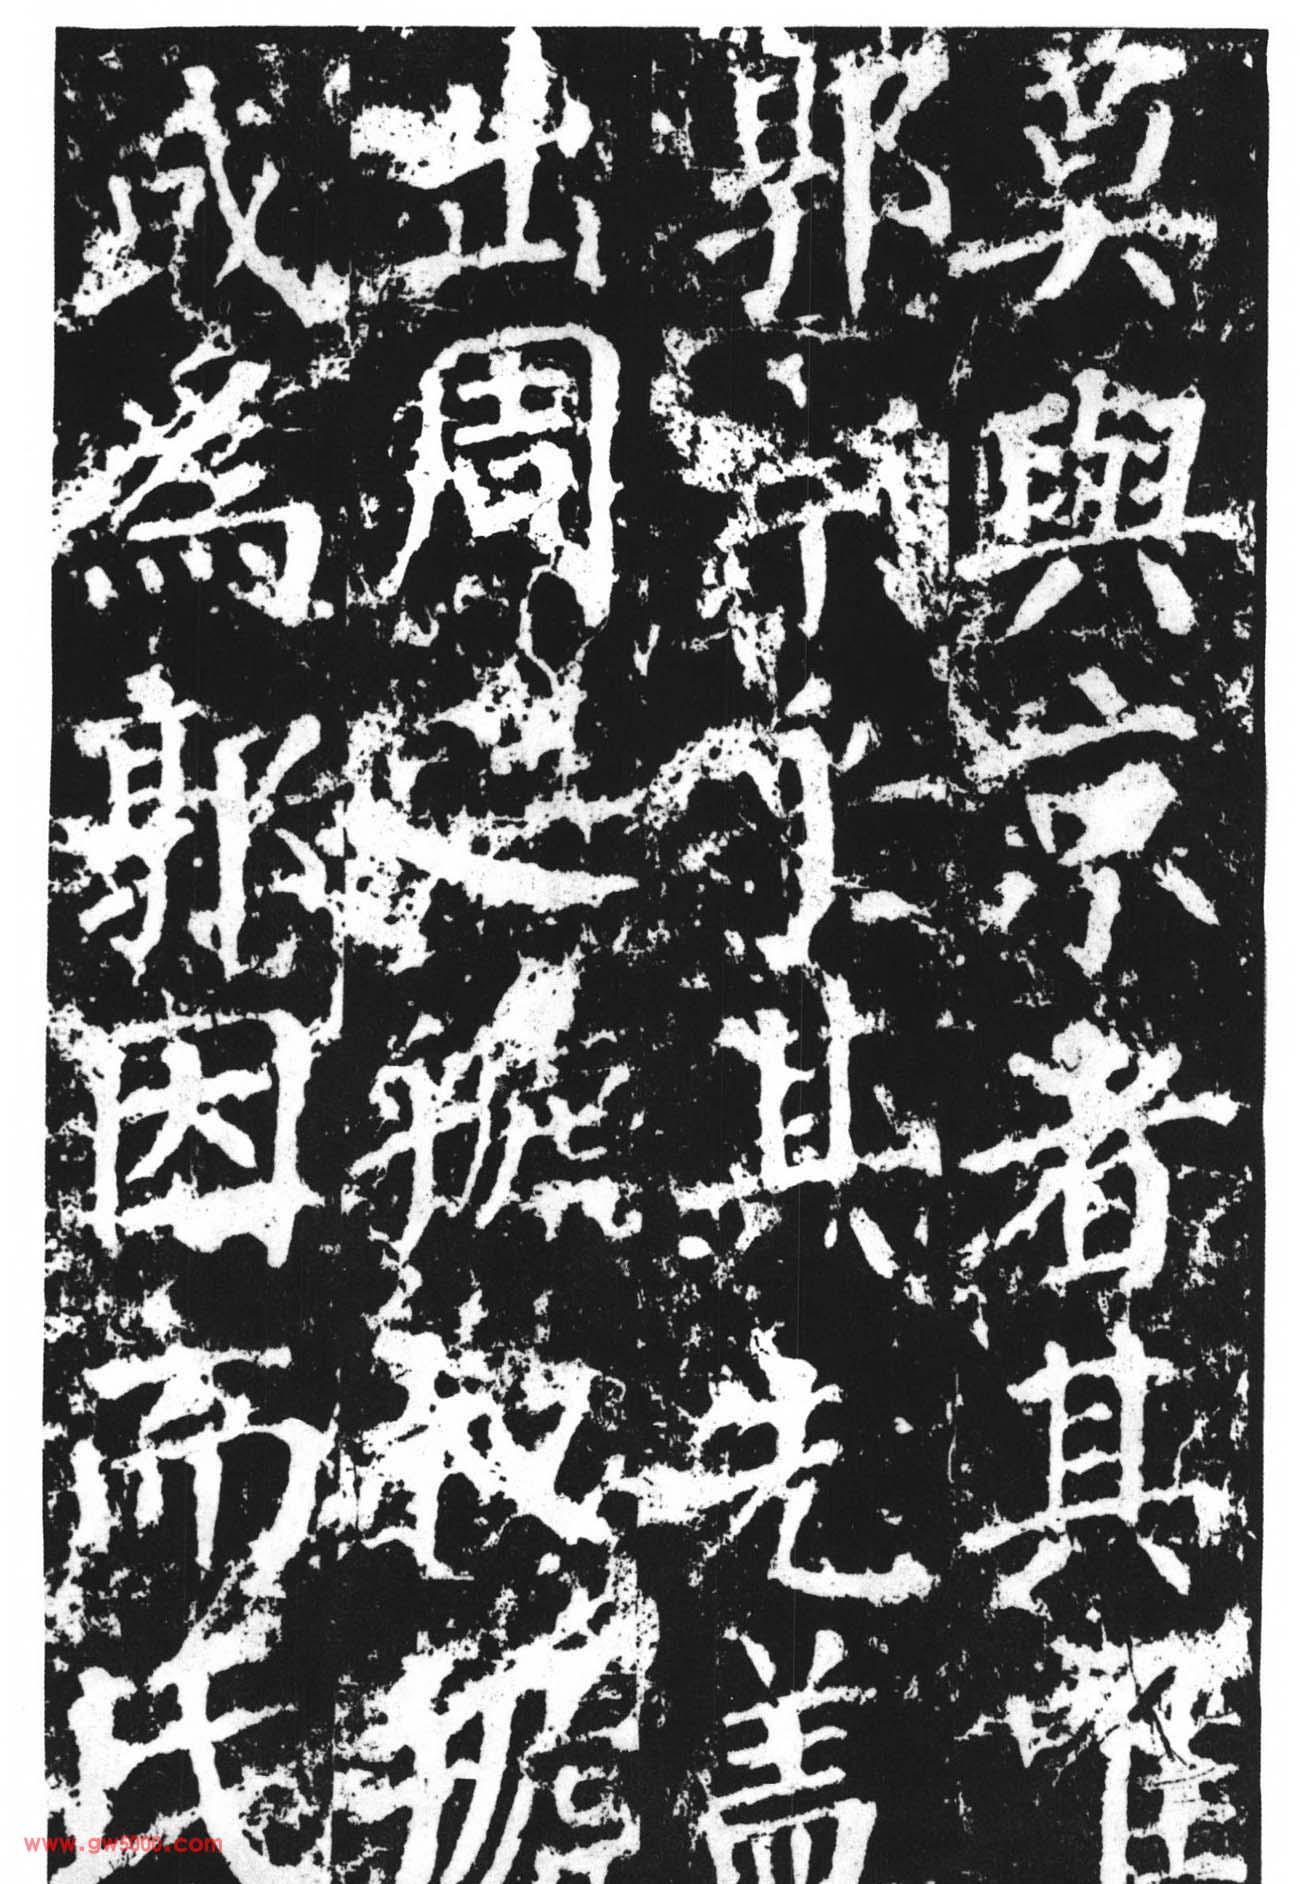 莫與京者其唯
郭宗乎其先盖
出周之虢叔虢
或為郭因而氏
www.gw5000.com